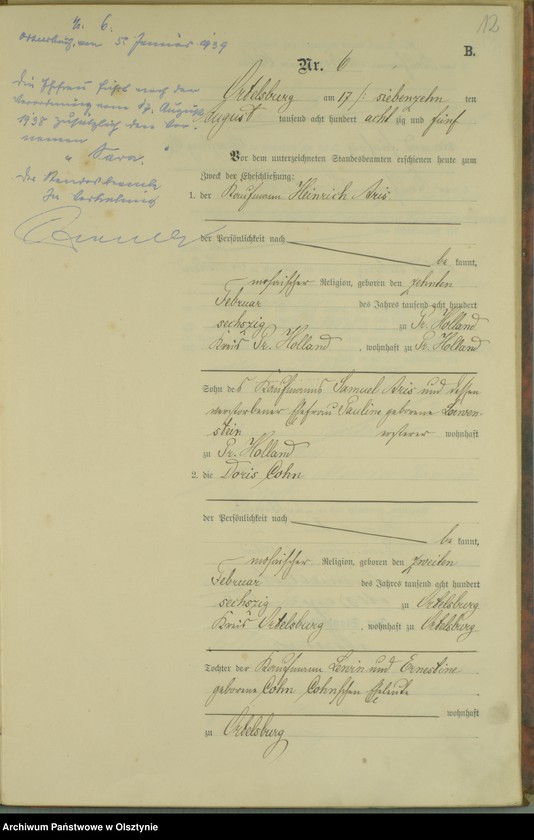 12
B.
N. 6.
Ortelsburg, am 5. Januar 1939
Die Ehefrau führt nach der
Verordnung vom 17. August
1938 zusätzlich den Vor-
namen
"Sara."
Der Standesbeamte
In Vertretung
Nr. 6
Ortelsburg am 17 /: siebenzehn ten
August tausend acht hundert acht zig und fünf
Vor dem unterzeichneten Standesbeamten erschienen heute zum
Zweck der Eheschließung:
1. der Kaufmann Heinrich Aris
der Persönlichkeit nach
be kannt,
mosaischer Religion, geboren den zehnten
Februar des Jahres tausend acht hundert
sechszig zu Pr. Holland
Kreis Pr. Holland, wohnhaft zu Pr. Holland
Sohn des Kaufmanns Samuel Aris und dessen
verstorbener Ehefrau Pauline geborene Loewen-
stein ersterer wohnhaft
zu Pr. Holland
2. die Doris Cohn
der Persönlichkeit nach
be kannt,
mosaischer Religion, geboren den zweiten
Februar des Jahres tausend acht hundert
sechszig zu Ortelsburg
Kreis Ortelsburg, wohnhaft zu Ortelsburg
Tochter der Kaufmann Lewin und Ernestine
geborene Cohn Cohnschen Eheleute
wohnhaft
zu Ortelsburg
Archiwum Państwowe w Olsztynie